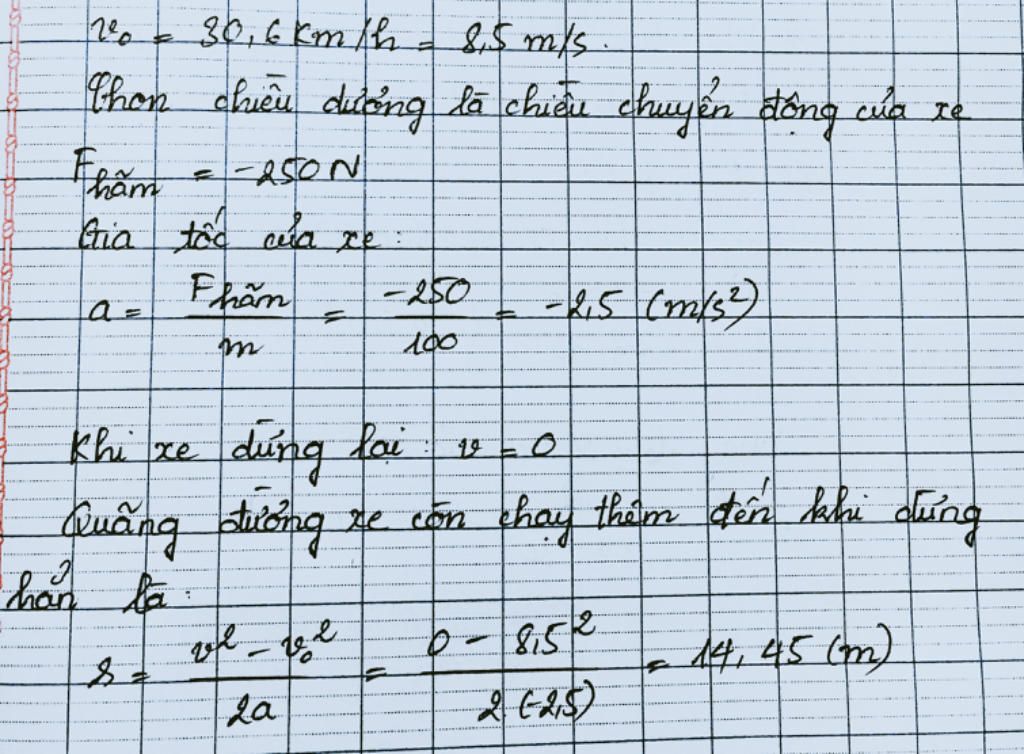 v₀ = 30,6 Km/h = 8,5 m/s.
Chọn chiều dương là chiều chuyển động của xe
F hãm = -250 N
Gia tốc của xe:
a = F hãm / m = -250 / 100 = -2,5 (m/s²)
Khi xe dừng lại: v = 0
Quãng đường xe còn chạy thêm đến khi dừng
hẳn là:
s = v² - v₀² / 2a = 0 - 8,5² / 2 (-2,5) = 14,45 (m)